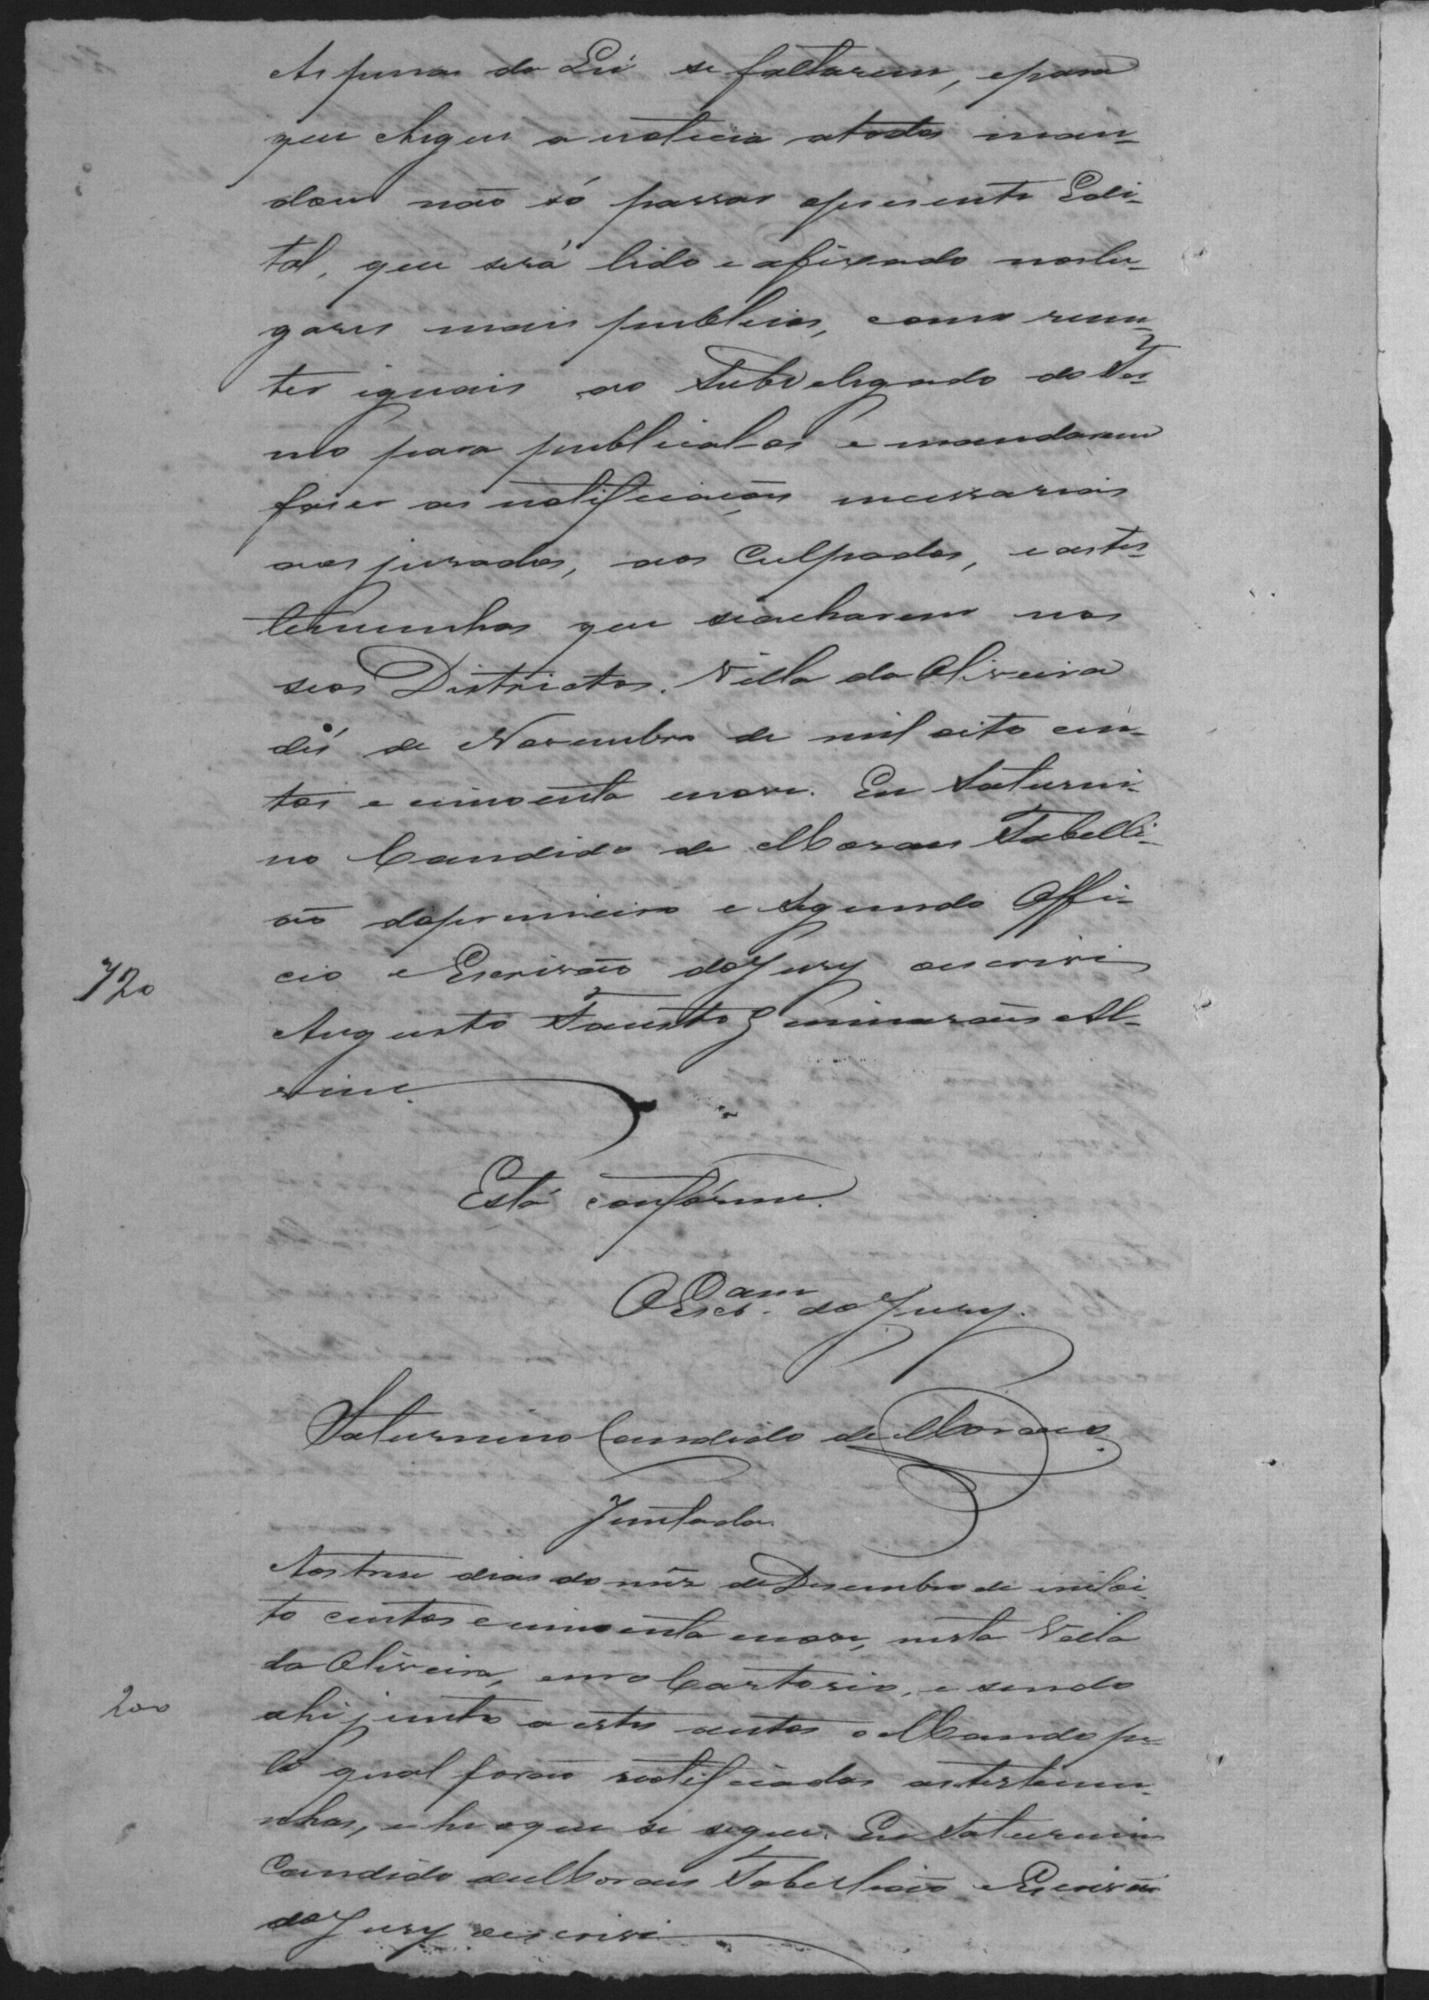 As penas da Lei se faltarem, epara
que chegue a noticia atodos man-
dou não só passar opresente Edi-
tal, que será lido e afixado noslu-
gares mais publicos, como reme-
ter iguais ao Subdelegado do Ter-
mo para publical-os e mandarem
faser as notificaçoẽs necessarias
aos jurados, aos Culpados, e astes-
temunhas que seacharem nos
seos Districtos. Villa da Oliveira
dés de Novembro de mil oito cen-
tos e cincoenta enove. Eu Saturni-
no Candido de Moraes Tabelli-
ão doprimeiro e Segundo Offi-
cio e Escrivão doJury oescrivi
720
Augusto Fausto Guimaraẽs Al-
vim.
Está confórme.
OEscr.am doJury.
Saturnino Candido de Moraes.
Juntada
Aos trese dias do mês deDesembro de miloi-
to centos ecincoenta enove, nesta Villa
da Oliveira, em o Cartorio, e sendo
200
ahi junto a estes autos o Mando pe-
lo qual forão notificadas astestemu-
nhas, e he oque se segue. Eu Saturnino
Candido deMoraes Tabellião e Escrivão
doJury oescrivi